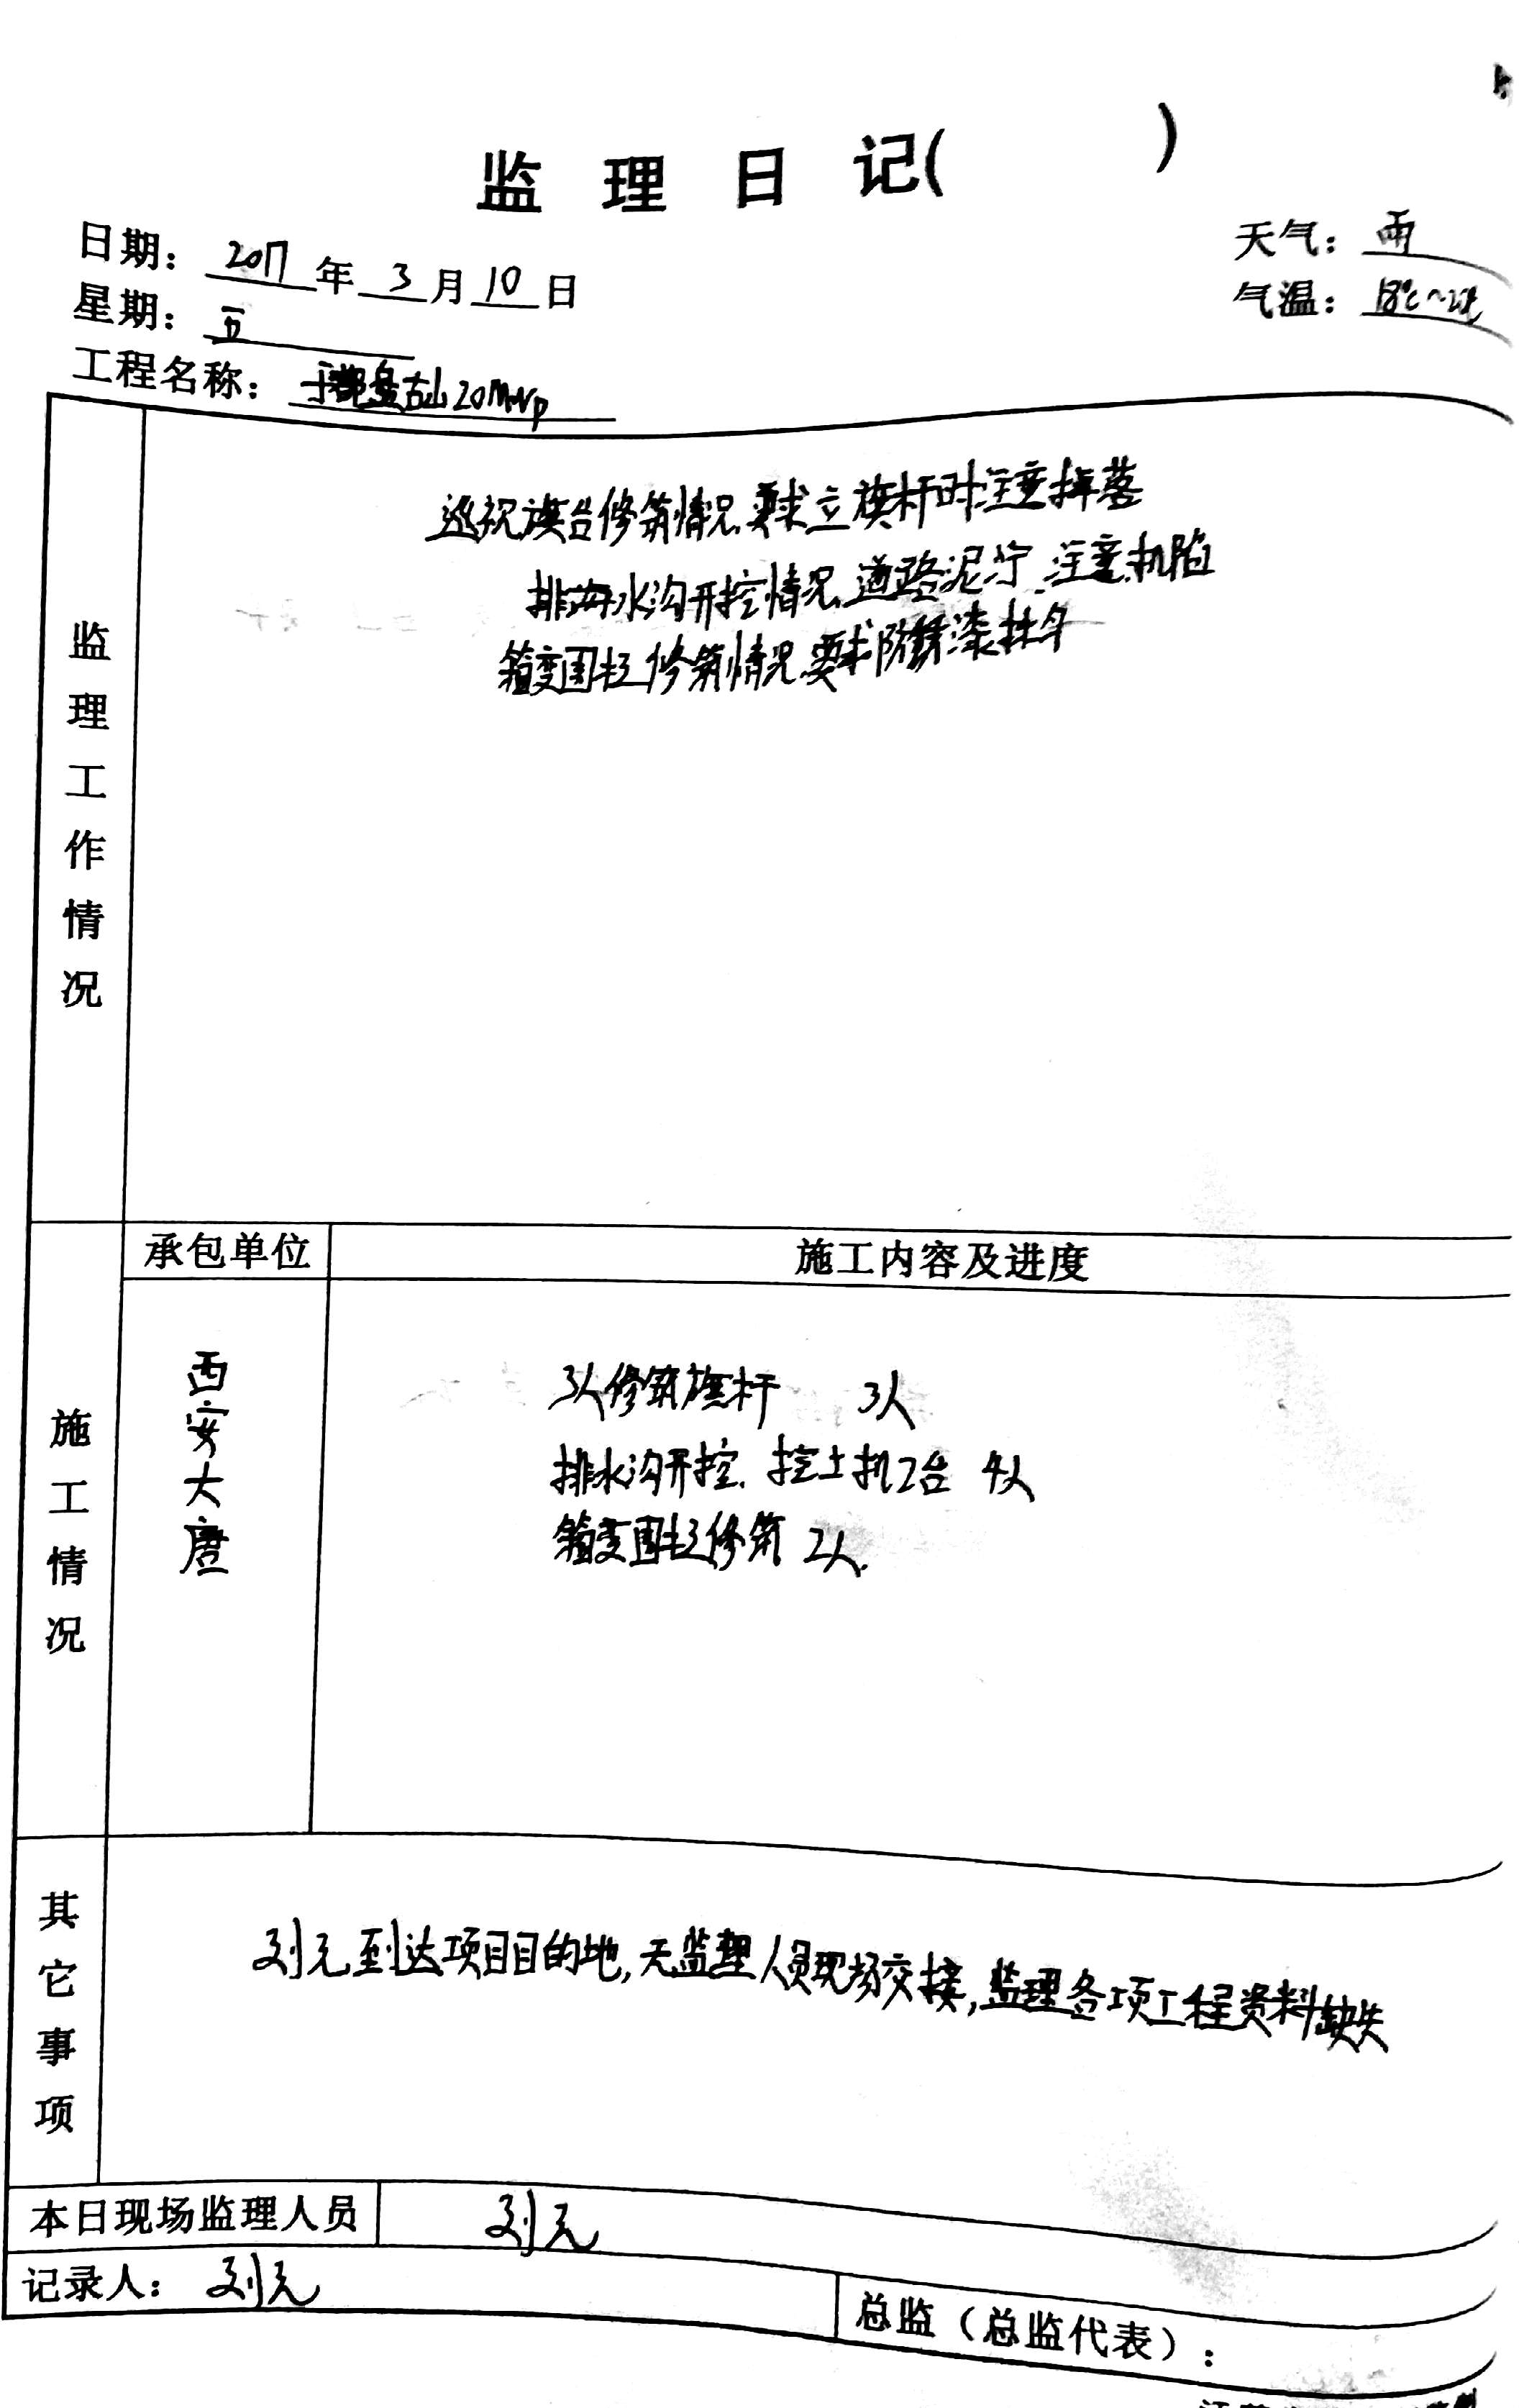 监理日记( )
日期：2017年3月10日
天气：雨
星期：五
气温：18℃~
工程名称：于都盘古山20MWp
监理工作情况
巡视旗台修筑情况，要求立旗杆时注意掉落
排水沟开挖情况，道路泥泞，注意机陷
箱变围栏修筑情况，要求防锈漆
承包单位
施工内容及进度
施工情况
西安大唐
3人修筑旗杆 3人
排水沟开挖，挖土机2台 4人
箱变围栏修筑 2人.
其它事项
刘元到达项目目的地，无监理人员现场交接，监理各项工程资料缺失
本日现场监理人员 刘元
记录人：刘元
总监（总监代表）：